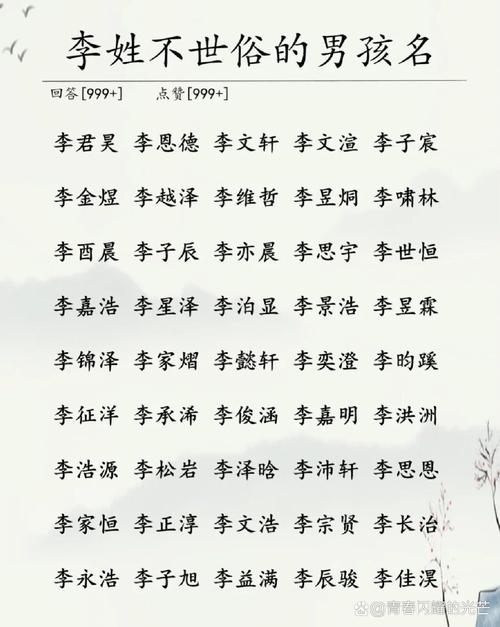 李姓不世俗的男孩名
回答[999+] 点赞[999+]
李君昊 李恩德 李文轩 李文渲 李子宸
李金煜 李越泽 李维哲 李昱炯 李啸林
李酉晨 李子辰 李亦晨 李思宇 李世恒
李嘉浩 李星泽 李泊显 李景浩 李昱霖
李锦泽 李家熠 李懿轩 李奕澄 李昀蹊
李征洋 李承浠 李俊涵 李嘉明 李洪洲
李浩源 李松岩 李泽晗 李沛轩 李思恩
李家恒 李正淳 李文浩 李宗贤 李长治
李永浩 李子旭 李益满 李辰骏 李佳淏
@青春闪耀的光芒